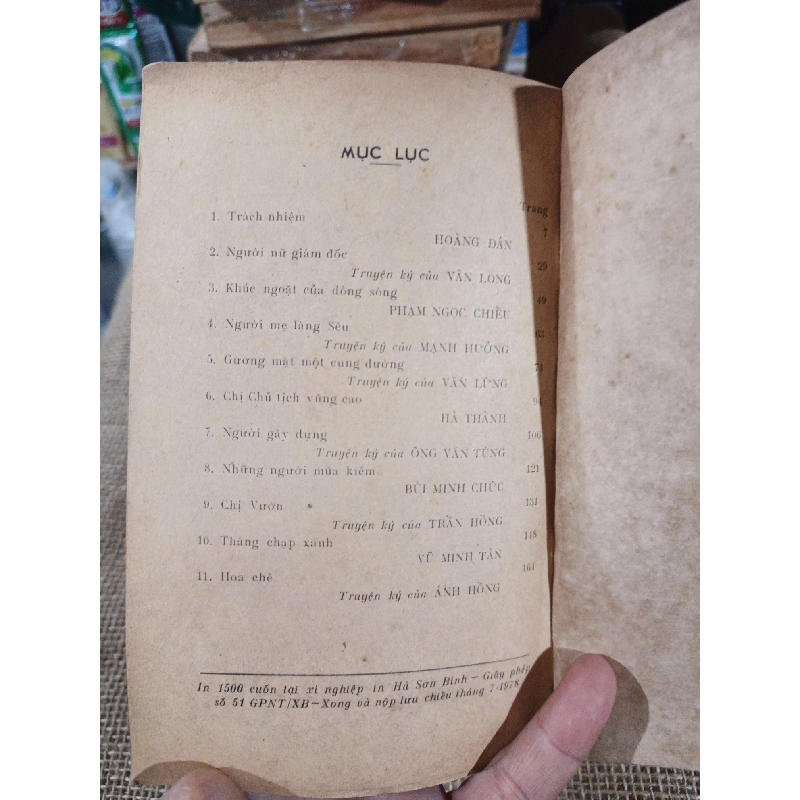 MỤC LỤC
Trang
1. Trách nhiệm 7
HOÀNG DÂN
2. Người nữ giám đốc 29
Truyện ký của VÂN LONG
3. Khúc ngoặt của dòng sông 49
PHẠM NGỌC CHIỂU
4. Người mẹ làng Sêu 63
Truyện ký của MẠNH HƯỞNG
5. Gương mặt một cung đường
Truyện ký của VĂN LỪNG
6. Chị Chủ tịch vùng cao 94
HÀ THÀNH
7. Người gây dựng 106
Truyện ký của ÔNG VĂN TÙNG
8. Những người múa kiếm 121
BÙI MINH CHỨC
9. Chị Vườn 131
Truyện ký của TRẦN HỒNG
10. Tháng chạp xanh 148
VŨ MINH TÂN
11. Hoa chè 161
Truyện ký của ÁNH HỒNG
In 1500 cuốn tại xí nghiệp in Hà Sơn Bình – Giấy phép
số 51 GPNT/XB – Xong và nộp lưu chiểu tháng 7-1978